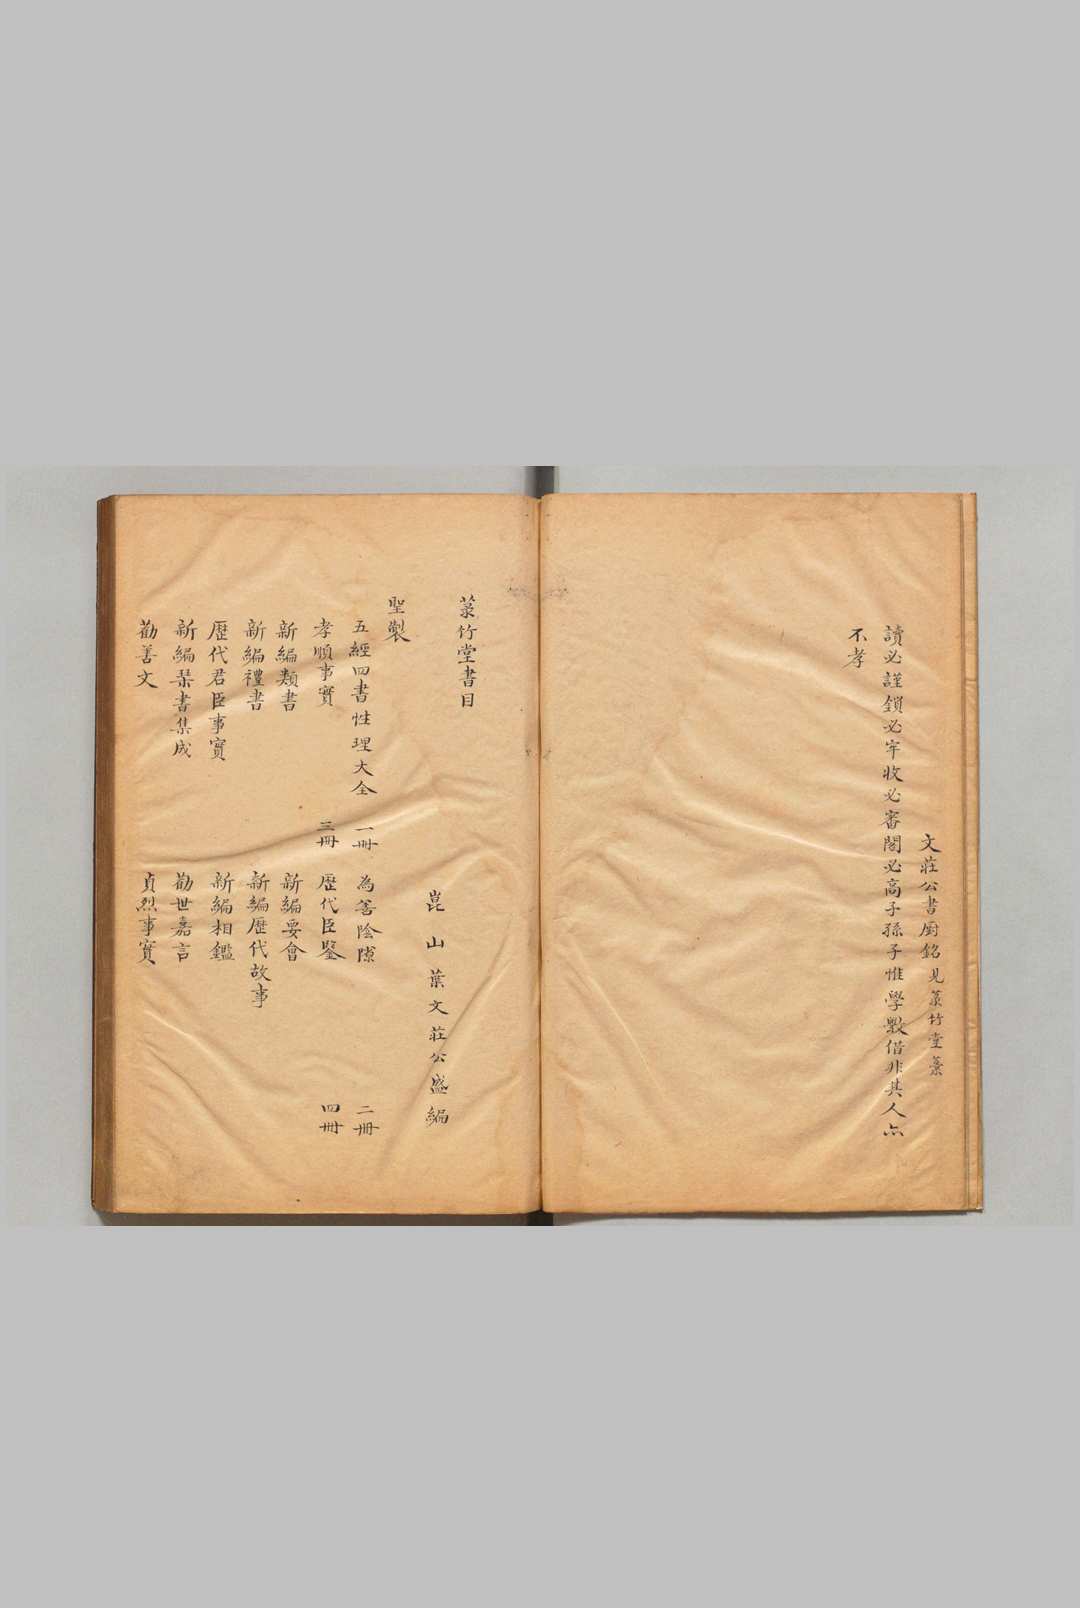 文莊公書厨銘見菉竹堂藁
讀必謹鎖必牢收必審閣必高子孫子惟學斆借非其人亦
不孝
菉竹堂書目
崑山葉文莊公盛編
聖製
五經四書性理大全 一冊 為善陰隲 二冊
孝順事實 三冊 歷代臣鑒 四冊
新編類書 新編要會
新編禮書 新編歷代故事
歷代君臣事實 新編相鑑
新編琹書集成 勸世嘉言
勸善文 貞烈事實